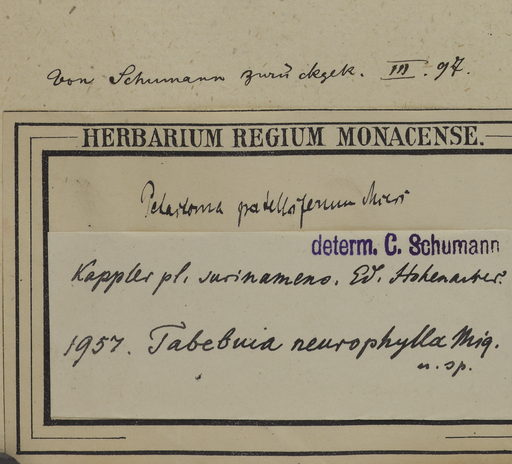 Von Schumann zurückgek. III. 97.
HERBARIUM REGIUM MONACENSE.
Petastoma patelliferum Miers
determ. C. Schumann
Kappler pl. surinamens. Ed. Hohenacker.
1957. Tabebuia neurophylla Miq.
n. sp.